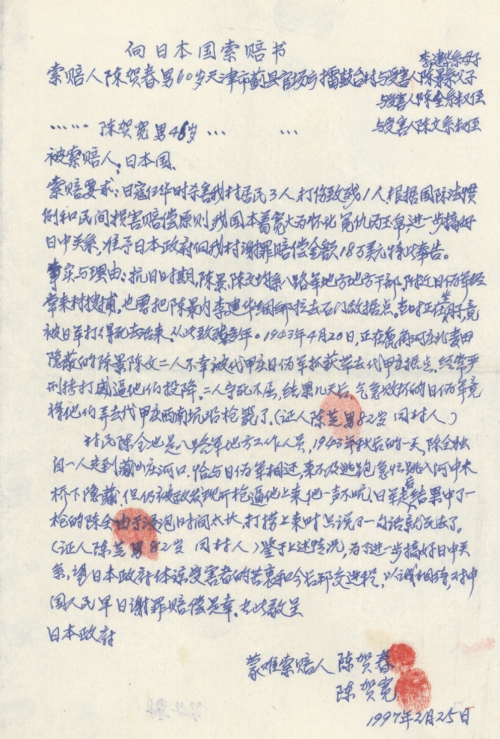 向日本国索赔书
李建华系母子
索赔人陈贺春男60岁天津市蓟县官场乡擂鼓台村与受害人陈景系父子
与受害人陈全系叔侄
…… 陈贺宽男48岁 … …
与受害人陈文系叔侄
被索赔人:日本国.
索赔要求:日寇侵华时杀害我村居民3人打伤致残1人根据国际法惯
例和民间损害赔偿原则我国本着宽大为怀化冤仇为玉帛进一步搞好
日中关系,准予日本政府向我村谢罪赔偿金额18万美元特此奉告。
事实与理由:抗日时期,陈景,陈文均系八路军地方地方干部,附近日伪军经
常来村搜捕,也曾把陈景内李建华绑去石门敌据点,当时正在坐月子,竟
被日军打得死去活来,从此致残多年。1943年4月20日,正在
隐蔽的陈景陈文二人不幸被代甲庄日伪军抓获带去代甲庄据点,经常严
刑拷打威逼他们投降,二人宁死不屈,结果几天后,气急败坏的日伪军竟
将他们弄去代甲庄西南坑沿枪毙了.(证人陈芝男82岁 同村人)
村民陈全也是八路军地方工作人员,1942年秋后的一天,陈全独
自一人走到庄河口,恰与日伪军相遇,来不及逃跑急忙跳入河中木
桥下隐藏,但仍被敌发现听枪逼他上来他一声不吭,日军结果中了一
枪的陈全由于浸泡时间太长,打捞上来时只说了一句话就死去了。
(证人陈芝男82岁 同村人)鉴于上述情况,为了进一步搞好中日关
系,请日本政府体谅受害者的苦衷和今后邦交进程,以诚相待,对中
国人民早日谢罪赔偿是幸,专此敬呈
日本政府
蒙难索赔人 陈贺春
陈贺宽
1997年2月25日